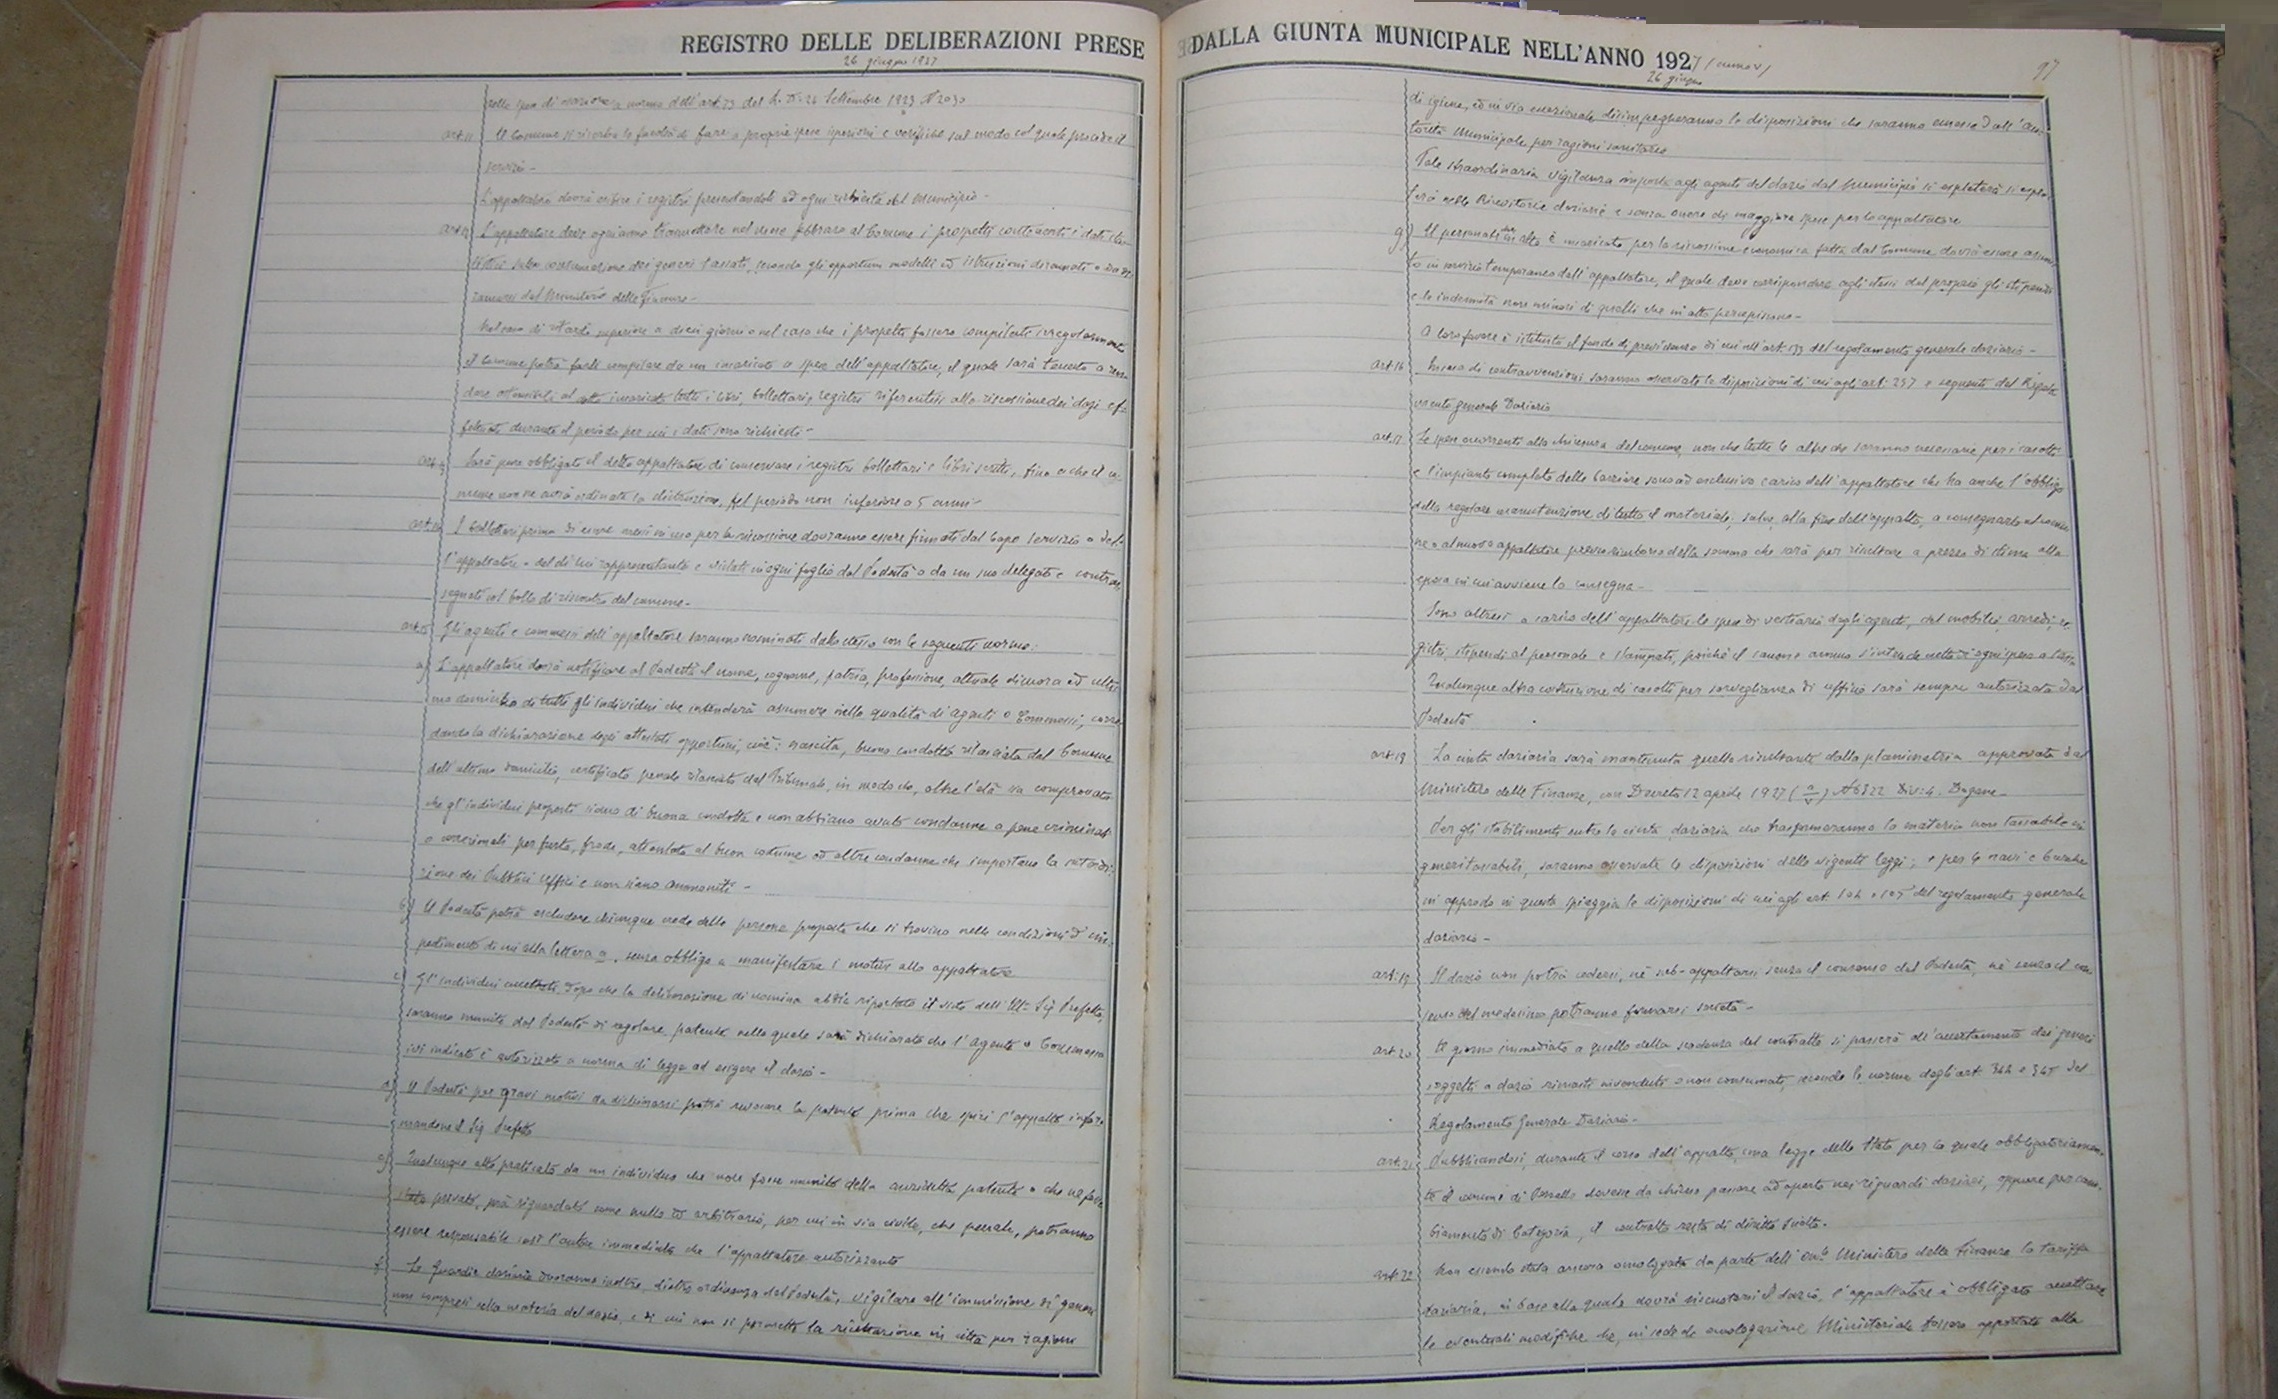 REGISTRO DELLE DELIBERAZIONI PRESE
26 giugno 1927
nelle spese di esazione a norma dell'art. 73 del R. D. 24 Settembre 1923 N 2030
art. 11 Il Comune si riserba la facoltà di fare a proprie spese ispezioni e verifiche sul modo col quale procede il
servizio -
L'appaltatore dovrà esibire i registri presentandoli ad ogni richiesta del Municipio -
L'appaltatore deve ogni anno trasmettere nel mese febbraio al Comune i prospetti contenenti i dati sta-
consumazione dei generi tassati, secondo gli opportuni modelli ed istruzioni diramate o da di-
ramarsi dal Ministero delle Finanze -
Nel caso di ritardo superiore a dieci giorni o nel caso che i prospetti fossero compilati irregolarmente
il Comune potrà farli compilare da un incaricato a spese dell'appaltatore, il quale sarà tenuto a ren-
dere ostensibili al incaricato tutti i libri, bollettari, registri riferentisi alla riscossione dei dazi ef-
fettuati durante il periodo per cui i dati sono richiesti -
Sarà pure obbligato il detto appaltatore di conservare i registri bollettari e libri scritti, fino a che il co-
mune non ne avrà ordinata la distruzione, pel periodo non inferiore a 5 anni -
I bollettari prima di essere messi in uso per la riscossione dovranno essere firmati dal Capo Servizio o del-
l'appaltatore o del di lui rappresentante e vidimati in ogni foglio dal Podestà o da un suo delegato e contras-
segnati col bollo di riscontro del comune -
Gli agenti e commessi dell'appaltatore saranno nominati dallo stesso con le seguenti norme:
a) L'appaltatore dovrà notificare al Podestà il nome, cognome, patria, professione, attuale dimora ed ulti-
mo domicilio di tutti gli individui che intenderà assumere nella qualità di agenti o Commessi, corre-
dando la dichiarazione degli attestati opportuni, cioè: nascita, buona condotta rilasciata dal Comune
dell'ultimo domicilio, certificato penale rilasciato dal Tribunale, in modo che, oltre l'età sia comprovato
che gl'individui proposti siano di buona condotta e non abbiano avuto condanne a pene criminali
o correzionali per furto, frode, attentato al buon costume od altre condanne che importano la interdi-
zione dei Pubblici Uffici e non siano ammoniti -
b) Il Podestà potrà escludere chiunque creda delle persone proposte che si trovino nelle condizioni d'im-
pedimento di cui alla lettera a, senza obbligo a manifestare i motivi allo appaltatore
c) Gl'individui accettati, dopo che la deliberazione di nomina abbia riportato il visto dell'Ill: Sig Prefetto,
saranno muniti dal Podestà di regolare patente nella quale sarà dichiarato che l'Agente o Commesso
ivi indicato è autorizzato a norma di legge ad esigere il dazio -
d) Il Podestà per gravi motivi da dichiararsi potrà revocare la patente prima che spiri l'appalto infor-
mandone il Sig Prefetto
e) Qualunque atto praticato da un individuo che non fosse munito della anzidetta patente o che ne fosse
stato privato, sarà riguardato come nullo ed arbitrario, per cui in via civile, che penale, potranno
essere responsabile così l'autore immediato che l'appaltatore autorizzante
f) Le guardie daziarie dovranno inoltre, dietro ordinanza del Podestà, vigilare all'immissione di generi
non compresi nella materia del dazio, e di cui non si permette la in città per ragioni
DALLA GIUNTA MUNICIPALE NELL'ANNO 1927 (anno V)
26 giugno
97
di igiene, ed in via eccezionale disimpegneranno le disposizioni che saranno emesse dall'au-
torità Municipale per ragioni sanitarie
Tale straordinaria vigilanza imposta agli agenti del dazio dal Municipio si espleterà si esple-
terà nelle Ricevitorie daziarie e senza onere di maggiore spesa per lo appaltatore
g) Il personale in atto è incaricato per la riscossione economica fatta dal Comune dovrà essere assun-
to in servizio temporaneo dall'appaltatore, il quale deve corrispondere agli stessi del proprio gli stipendi
e le indennità non minori di quelli che in atto percepiscono -
A loro favore è istituito il fondo di previdenza di cui all'art. 133 del regolamento generale daziario -
art. 16 In caso di contravvenzioni saranno osservate le disposizioni di cui agli art. 297 e seguenti del Rego-
mento generale Daziario
art. 17 Le spese occorrenti alla chiusura del comune, non che tutte le altre che saranno necessarie per i casotti
e l'impianto completo delle barriere sono ad esclusivo carico dell'appaltatore che ha anche l'obbligo
della regolare manutenzione di tutto il materiale, salvo, alla fine dell'appalto, a consegnarlo al comu-
ne o al nuovo appaltatore previo rimborso della somma che sarà per risultare a prezzo di stima alla
epoca in cui avviene la consegna -
Sono altresì a carico dell'appaltatore le spese di vestiario degli agenti, del mobilio, arredi, re-
gistri, stipendi al personale e stampati, poiché il canone annuo s'intende netto di ogni peso a
Qualunque altra costruzione di casotti per sorveglianza di ufficio sarà sempre autorizzata dal
Podestà
art. 18 La cinta daziaria sarà mantenuta quella risultante dalla planimetria approvata dal
Ministero delle Finanze, con Decreto 12 aprile 1927 N 6322 Div: 4. Dogane -
Per gli stabilimenti entro la cinta daziaria che trasformeranno la materia non tassabile in
generi tassabili, saranno osservate le disposizioni delle vigenti leggi; e per le navi e barche
in approdo in questa spiaggia le disposizioni di cui agli art. 104 e 105 del regolamento generale
daziario -
art. 19 Il dazio non potrà cedersi, né sub-appaltarsi senza il consenso del Podestà, né senza il con-
senso del medesimo potranno formarsi società -
art. 20 Il giorno immediato a quello della scadenza del contratto si passerà all'accertamento dei generi
soggetti a dazio rimasti invenduti o non consumati, secondo le norme degli art 344 e 345 del
Regolamento Generale Daziario -
art. 21 Pubblicandosi, durante il corso dell'appalto, una legge dello Stato per la quale obbligatoriamen-
te il comune di dovesse da chiuso passare ad aperto nei riguardi daziari, oppure per cam-
biamento di Categoria, il contratto resta di diritto sciolto.
art. 22 Non essendo stata ancora omologata da parte dell'On.le Ministero delle Finanze la tariffa
daziaria, in base alla quale dovrà riscuotersi il dazio, l'appaltatore è obbligato accettare
le eventuali modifiche che, in sede di omologazione Ministeriale fossero apportate alla